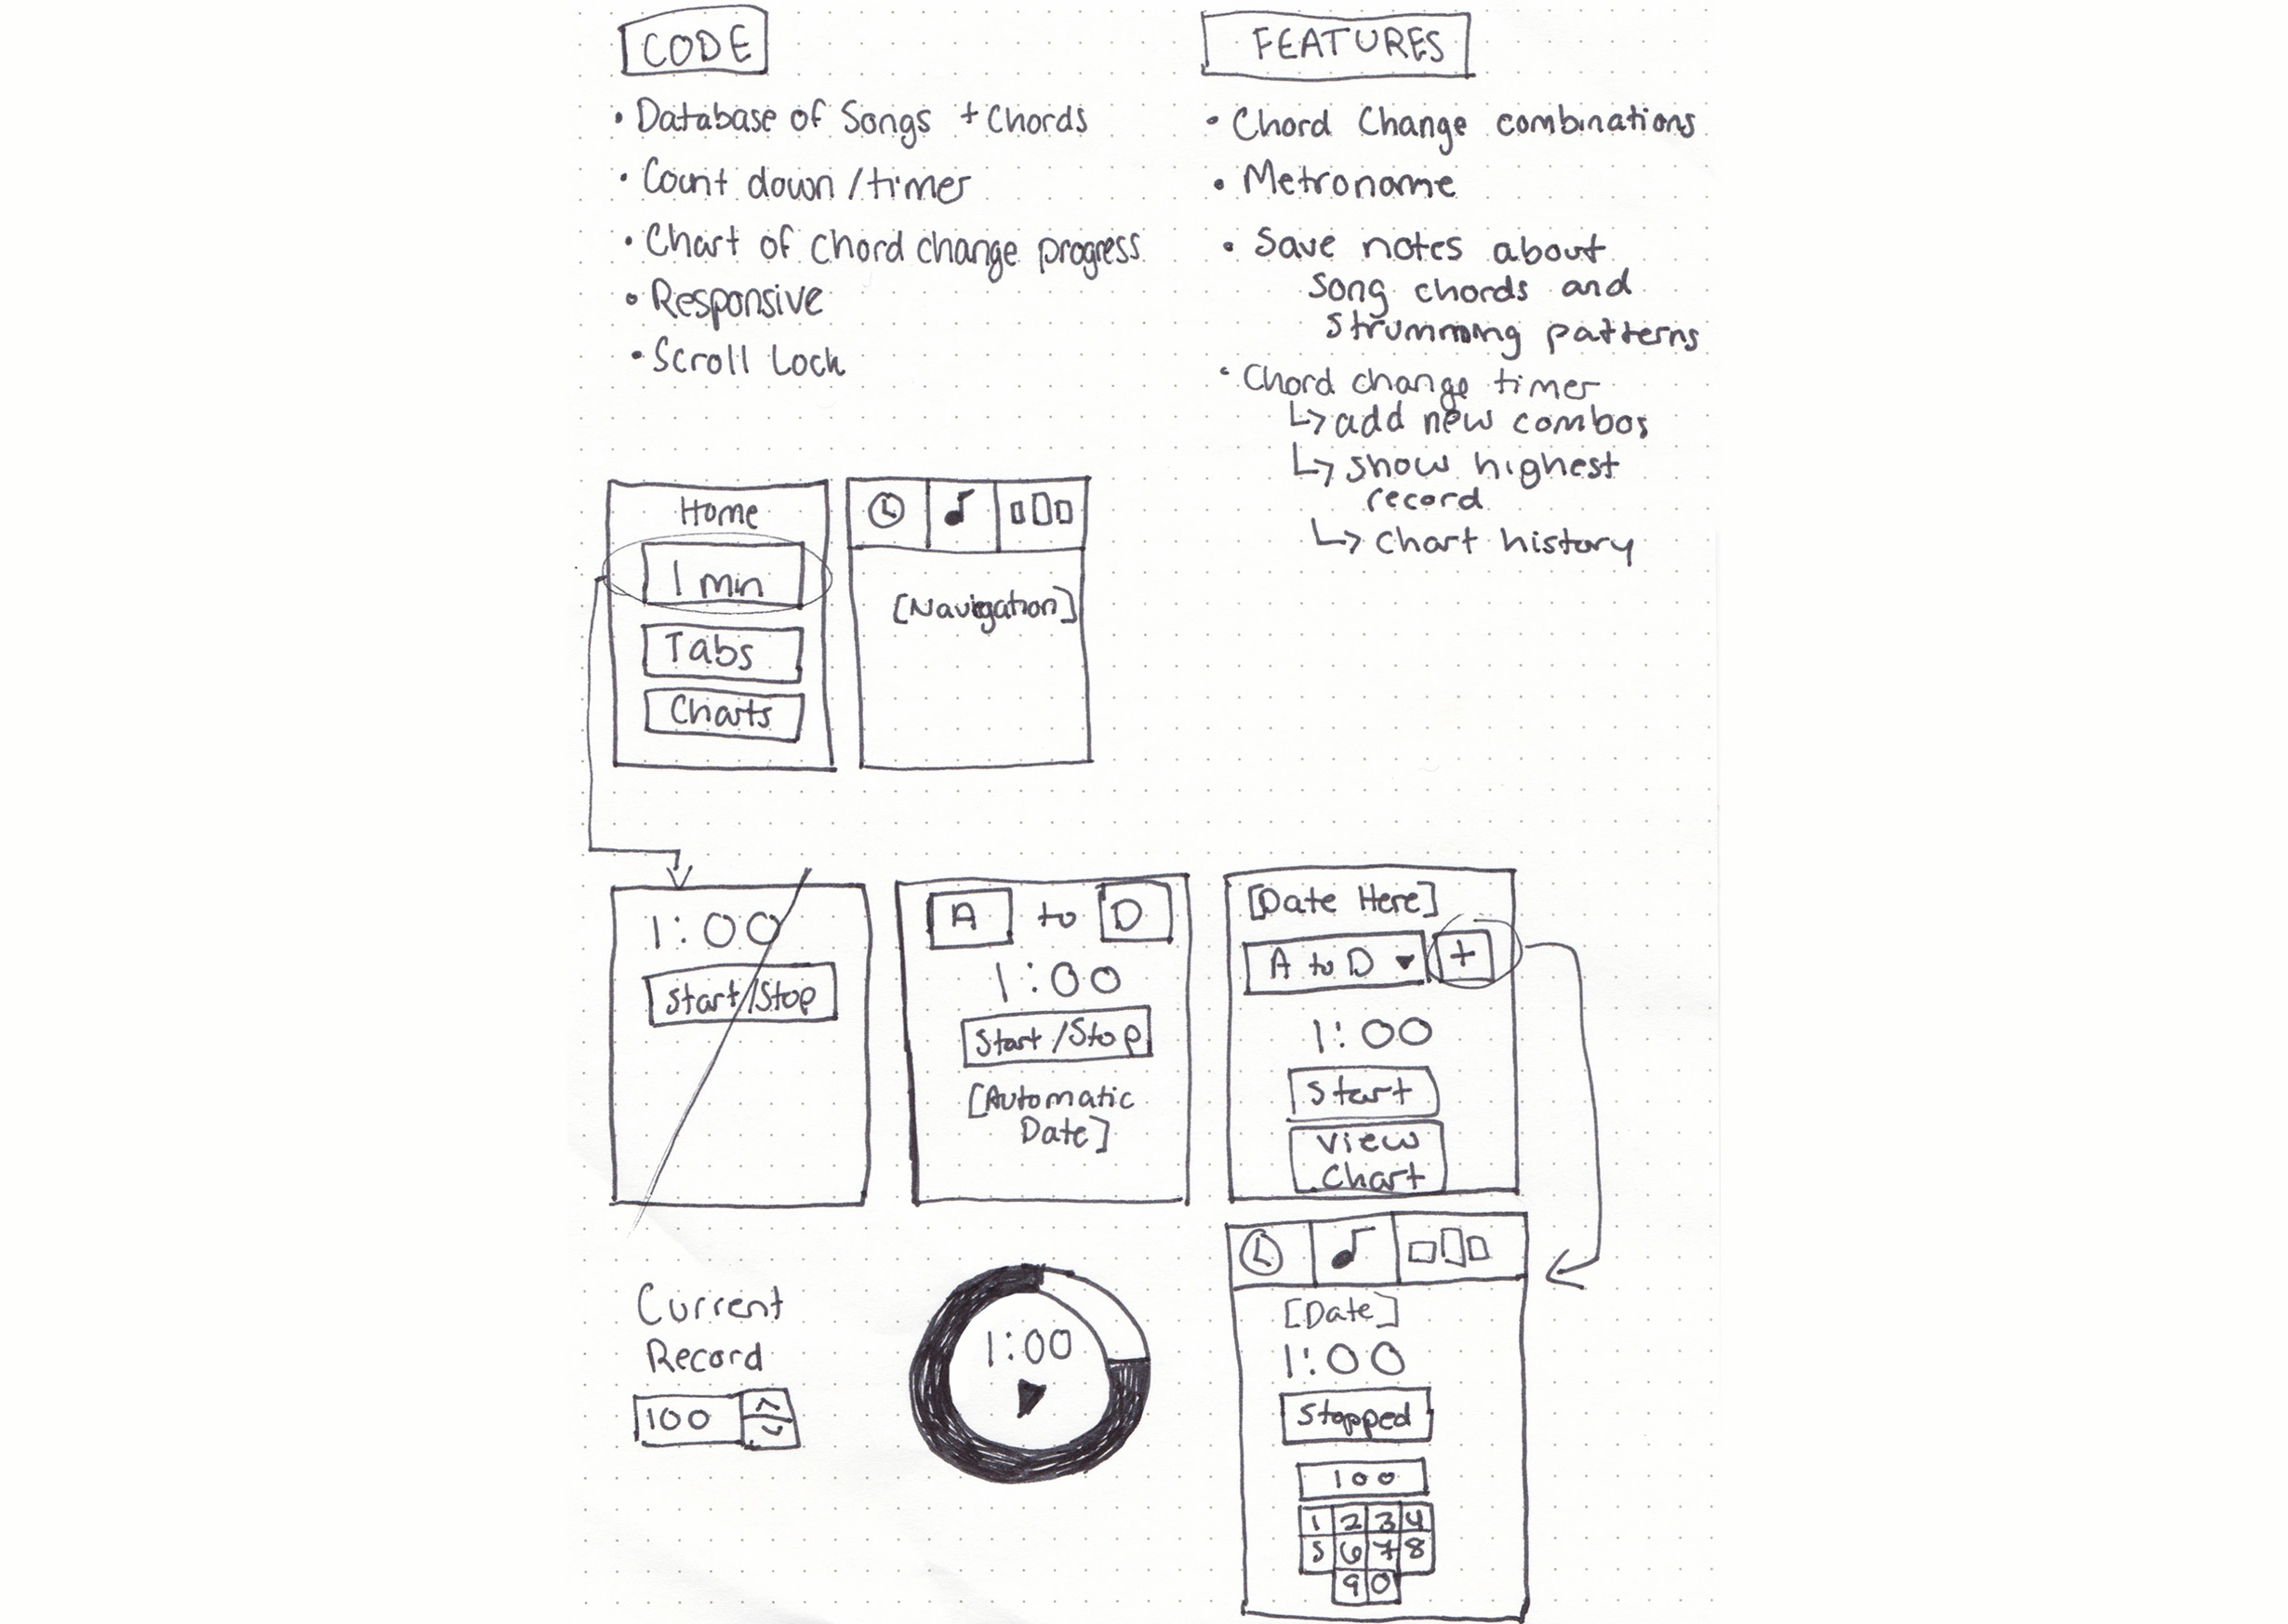 CODE
• Database of Songs + Chords
• Count down/timer
• Chart of chord change progress
• Responsive
• Scroll Lock
FEATURES
• Chord Change combinations
• Metroname
• Save notes about
song chords and
strumming patterns
• Chord change timer
↳ add new combos
↳ show highest
record
↳ chart history
Home
1 min
Tabs
Charts
[Navigation]
1:00
Start/Stop
A to D
1:00
Start/Stop
[Automatic
Date]
[Date Here]
A to D ▾ +
1:00
Start
View
Chart
Current
Record
100
1:00
[Date]
1:00
Stopped
100
1 2 3 4
5 6 7 8
9 0